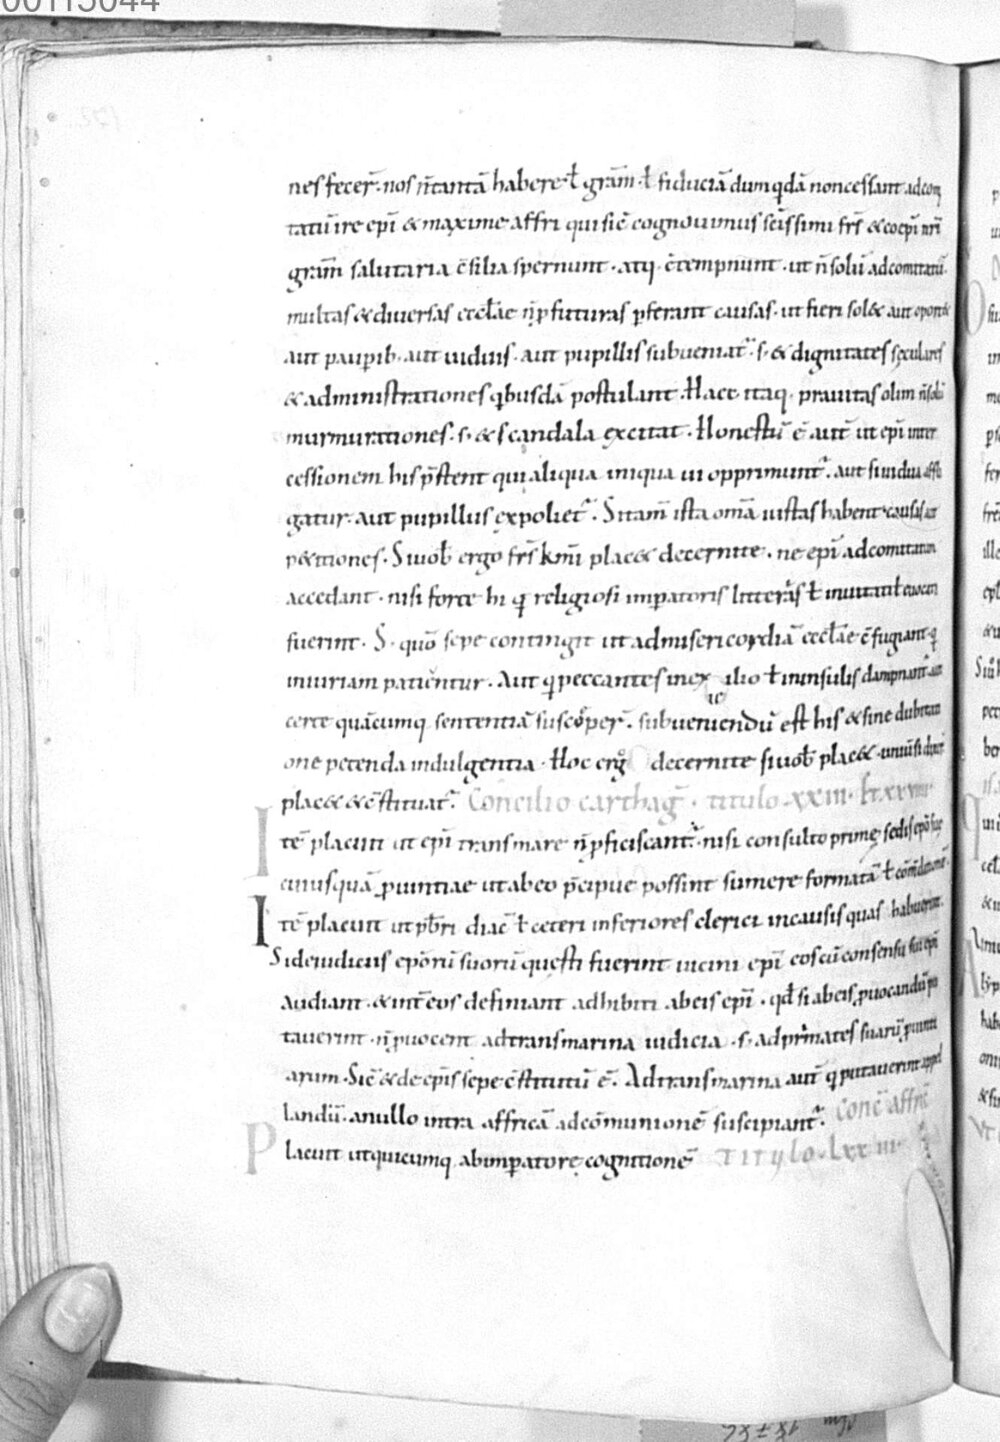 00115044
nes fecer̄. nos n̄ tantā habere ł grām. ł fiduciā dum q̄dā non cessant ad com
tatū ire ep̄i & maxime affri qui sic̄ cognovimus sc̄issimi fr̄s & coep̄i nr̄i
grām salutaria c̄silia spernunt. atq. c̄tempnunt. ut n̄ solū ad comitatū.
multas & diversas eccłae n̄ p̱futuras p̱ferant causas. ut fieri sol& aut oport&
aut paup̱ib. aut viduis. aut pupillis subveniat᷑. s. & dignitates sęculares
& administrationes q̱busdā postulant. Haec itaq. pravitas olim n̄ solū
murmurationes. s. & scandala excitat. Honestū ē aut̄ ut ep̄i inter
cessionem his p̄stent qui aliqua iniqua vi opprimunt᷑. aut si vidua affli
gatur. aut pupillus expoliet᷑. Si tam̄ ista om̄a iustas habent causas aut
p&itiones. Si vob̄ ergo fr̄s km̄i plac& decernite. ne ep̄i ad comitatum
accedant. nisi forte hi q̱ religiosi imp̱atoris litterȧs ł invitati ł evocati
fuerint. S. quō sepe contingit ut ad misericordiā eccłae c̄fugiant q̱
iniuriam patiuntur. Aut q̱ peccantes in exilio ł in insulis dampnant᷑ aut
certe quācumq. sententiā suscep̱er̄. subveniendū est his & sine dubitati
one petenda indulgentia. Hoc erg̊ decernite si vob̄ plac&. universi dixer̄
plac& & c̄stituat᷑. Concilio carthaḡ. titulo xxiii. & xxviii
Itē placuit ut ep̄i trans mare n̄ p̱ficiscant᷑. nisi consulto primę sedis ep̄o suę
cuiusquā p̱vintiae ut ab eo p̄cipue possint sumere formatā ł com̄dationē.
Itē placuit ut pb̄ri diac̄ ł ceteri inferiores clerici in causis quas habuerint.
Si de iudiciis ep̄orū suorū questi fuerint vicini ep̄i eos cū consensu sui ep̄i
audiant. & int̄ eos definiant adhibiti ab eis ep̄i. qd̄ si ab eis p̱vocandū pu
taverint. n̄ p̱vocent ad transmarina iudicia. s. ad primates suarū p̱vinti
arum. Sic̄ & de ep̄is sepe c̄stitutū ē. Ad transmarina aut̄ q̱ putaverint appel
landū. a nullo intra affricā ad cōmunionē suscipiant᷑. Conc̄ affric̄
Placuit ut quicumq. ab imp̱atore cognitionē Titylo. lxxiii